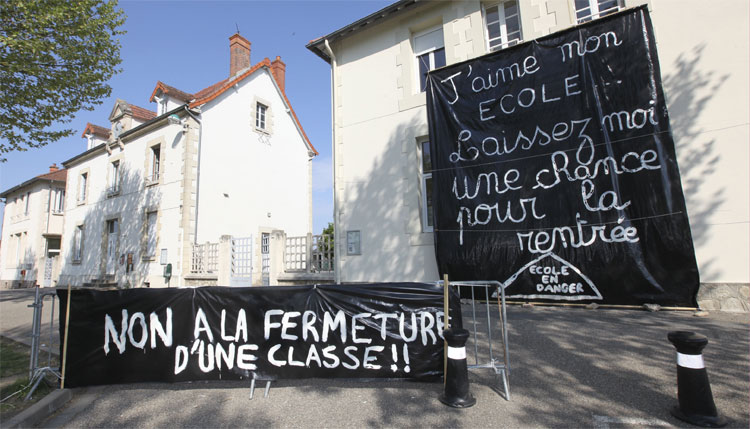 J'aime mon
ECOLE !
Laissez moi
une chance
pour la
rentrée
ECOLE
EN DANGER
NON A LA FERMETURE
D'UNE CLASSE!!